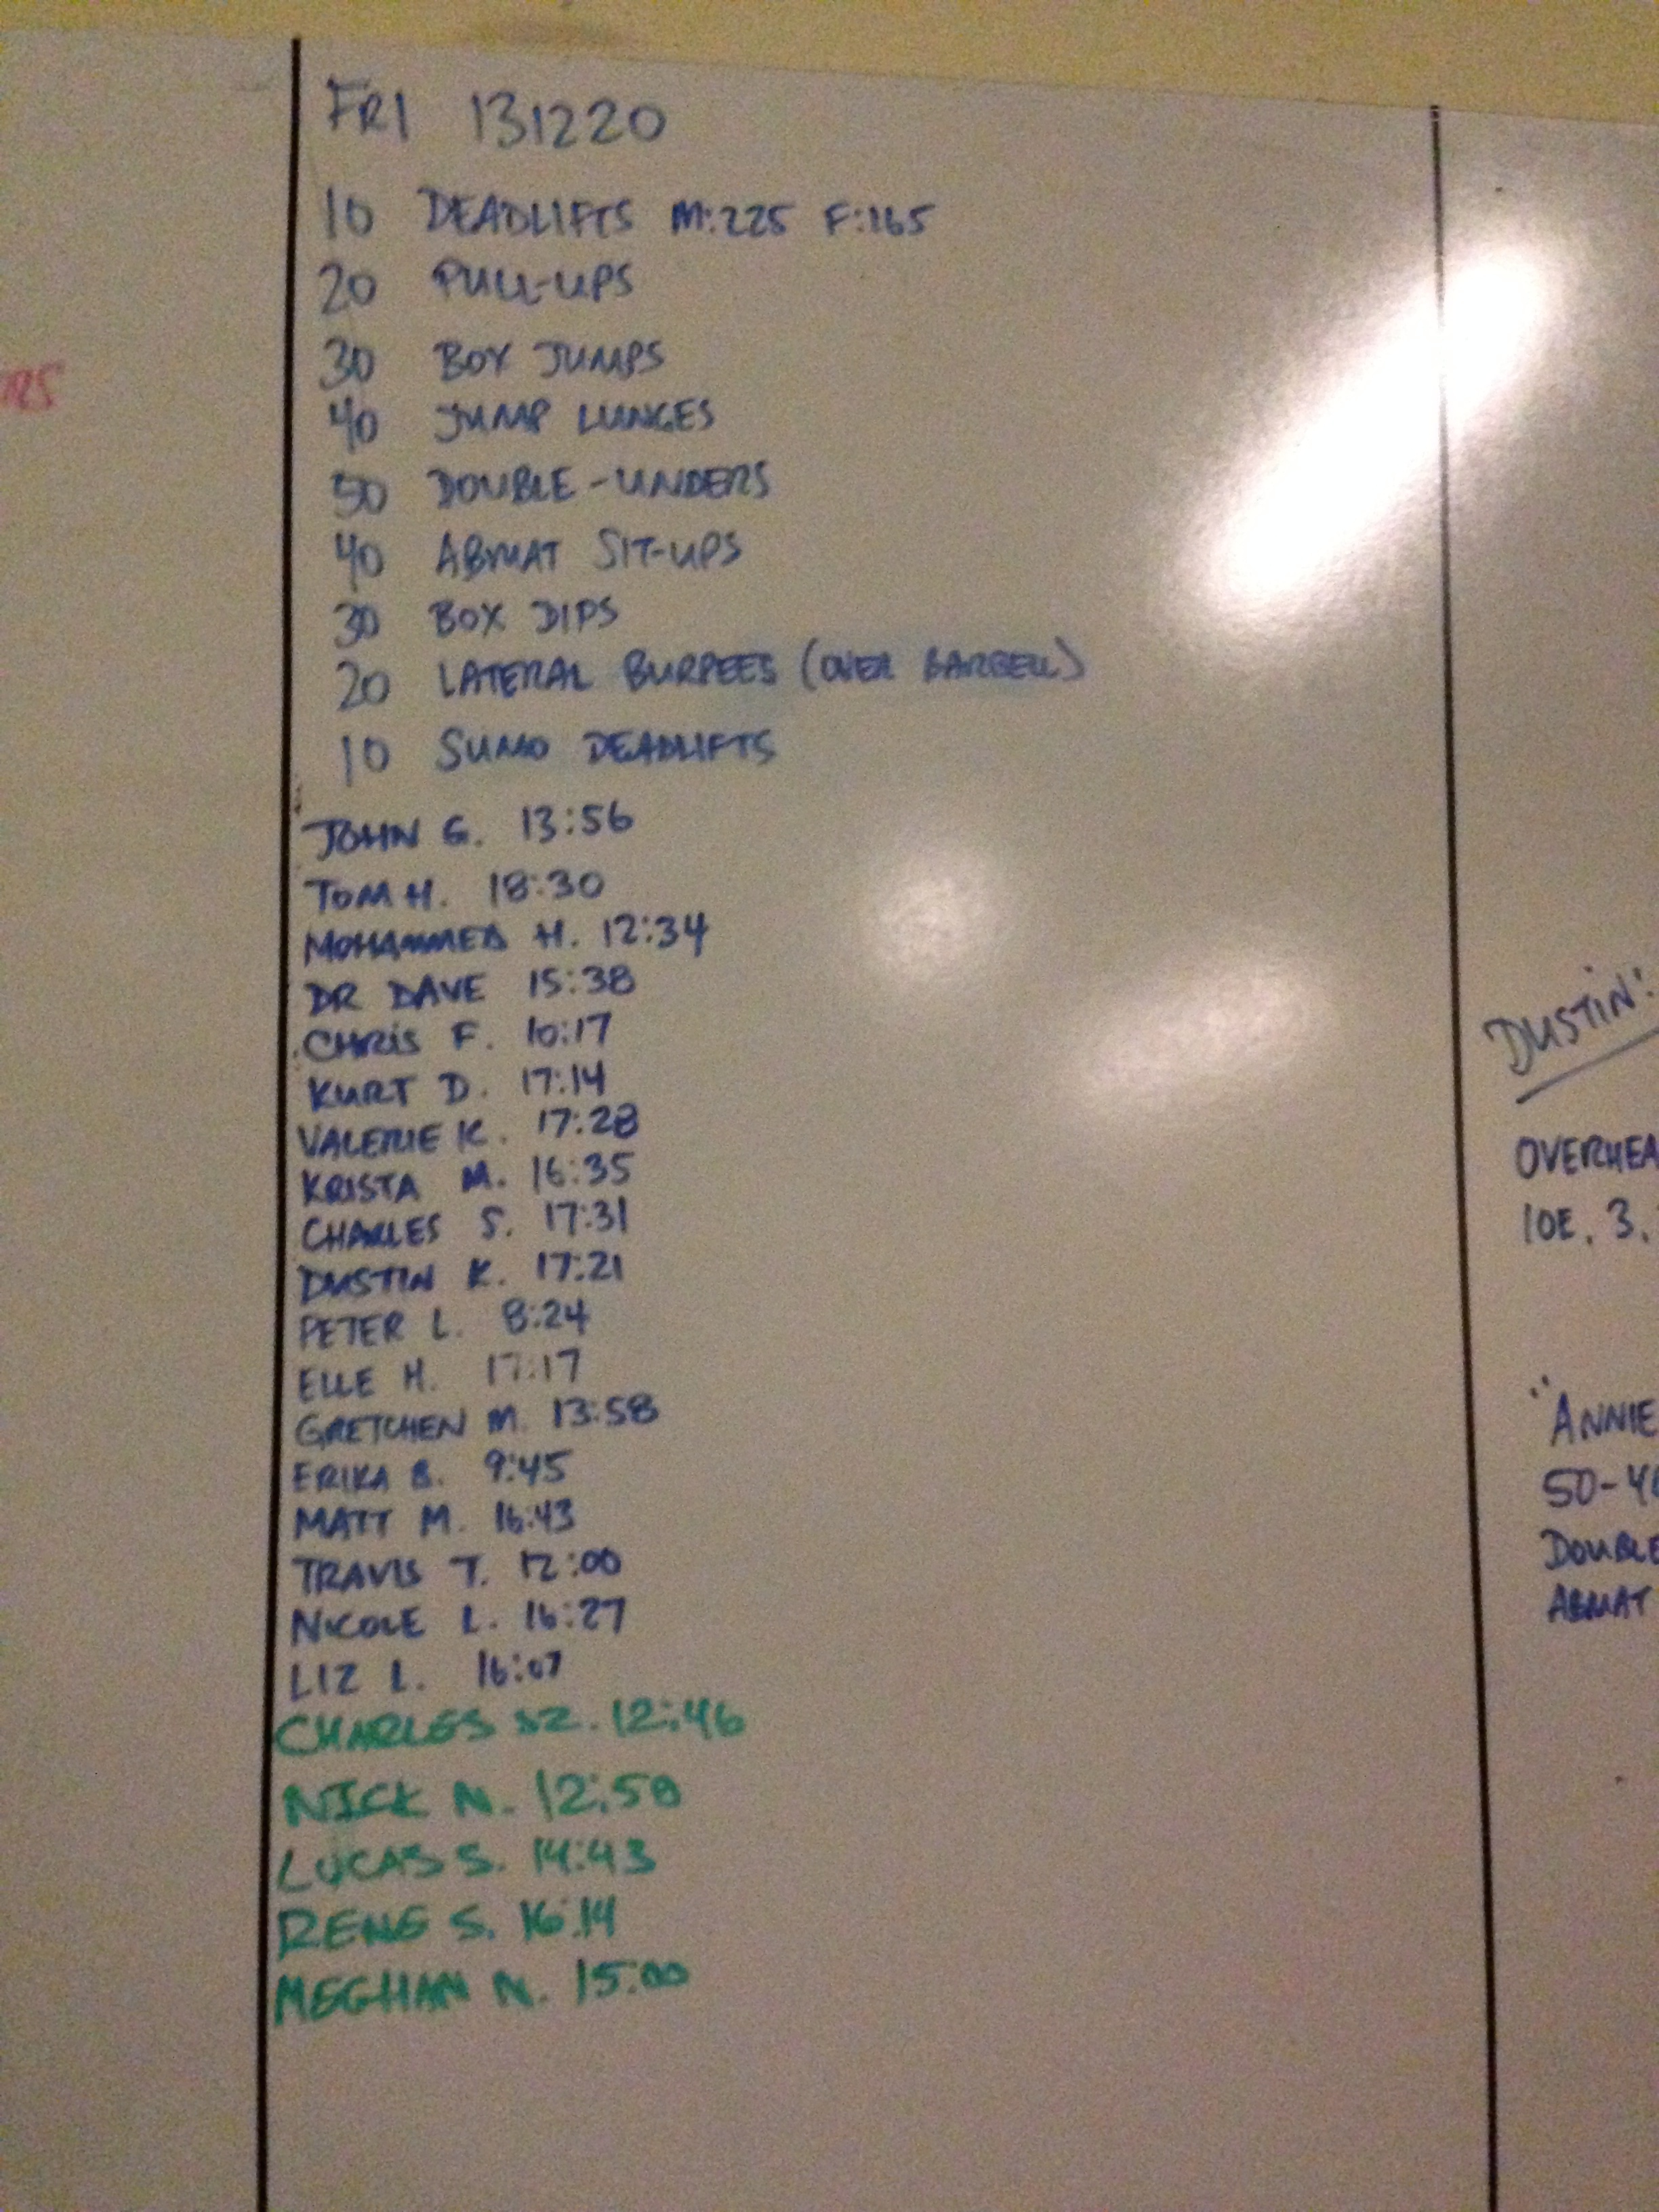 FRI 131220
10 DEADLIFTS M:225 F:165
20 PULL-UPS
30 BOX JUMPS
40 JUMP LUNGES
50 DOUBLE-UNDERS
40 ABMAT SIT-UPS
30 BOX DIPS
20 LATERAL BURPEES (OVER BARBELL)
10 SUMO DEADLIFTS
JOHN G. 13:56
TOM H. 18:30
MOHAMMED H. 12:34
DR DAVE 15:38
CHRIS F. 10:17
KURT D. 17:14
VALERIE K. 17:28
KRISTA M. 16:35
CHARLES S. 17:31
DUSTIN K. 17:21
PETER L. 8:24
ELLE H. 17:17
GRETCHEN M. 13:58
ERIKA B. 9:45
MATT M. 16:43
TRAVIS T. 12:00
NICOLE L. 16:27
LIZ L. 16:07
CHARLES SZ. 12:46
NICK N. 12:58
LUCAS S. 14:43
RENE S. 16:14
MEGHAN N. 15:00
DUSTIN:
OVERHEA
10E, 3,
"ANNIE
50-40
DOUBLE
ABMAT